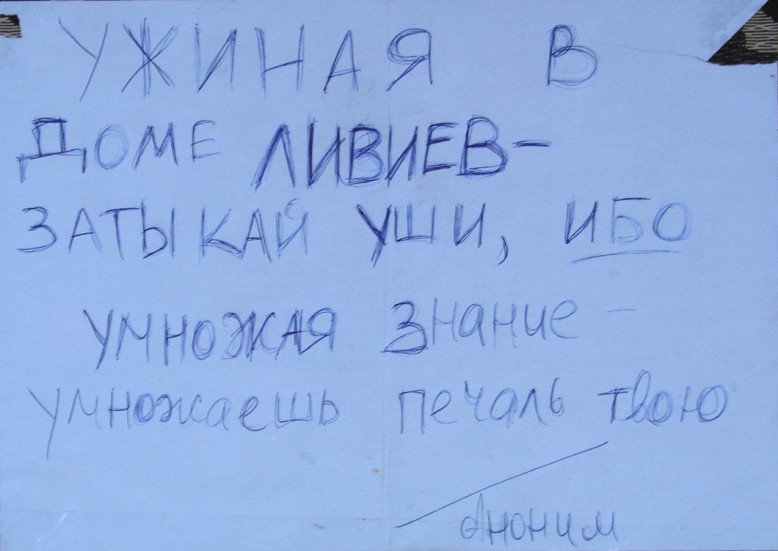 УЖИНАЯ В
ДОМЕ ЛИВИЕВ-
ЗАТЫКАЙ УШИ, ИБО
УМНОЖАЯ ЗНАНИЕ -
УМНОЖАЕШЬ ПЕЧАЛЬ ТВОЮ
Аноним